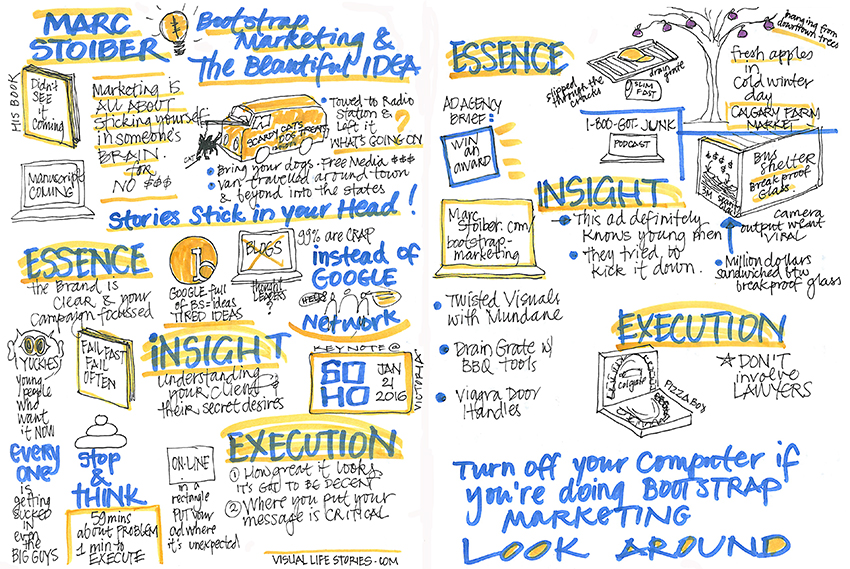 MARC
STOIBER
Bootstrap
Marketing &
The Beautiful IDEA
HIS BOOK
Didn't
See
it
Coming
Marketing is
ALL ABOUT
Sticking yourself
in someone's
BRAIN.
for
NO $$$
Manuscript
COMING
SCARDY CATS
DOG TREATS
CAT
Towed to Radio
Station &
Left it
WHAT'S GOING ON
?
Bring your dogs - Free Media $$$
Van travelled around town
& beyond into the states
Stories Stick in your Head!
ESSENCE
the Brand is
Clear & your
Campaign focussed
GOOGLE full
of BS = ideas
TIRED IDEAS
BLOGS
thought
LEADERS
?
99% are CRAP
instead of
GOOGLE
Network
YUCKIES
young
people
who
want
it NOW
FAIL FAST
FAIL
OFTEN
INSIGHT
understanding
your client
their secret desires
KEYNOTE @
SO
HO
JAN
21
2016
VICTORIA
every
one
is
getting
SUCKED
IN
even
the
BIG GUYS
Stop
&
THINK
59 mins
about PROBLEM
1 min to
EXECUTE
ON-LINE
in a
rectangle
PUT your
ad where
it's unexpected
EXECUTION
① How great it looks
IT'S GOT TO BE DECENT
② Where you put your
message is CRITICAL
VISUAL LIFE STORIES.COM
ESSENCE
slipped
through the
cracks
drain
grate
SLIM
FAST
hanging from
downtown trees
fresh apples
in
cold winter
day
CALGARY FARM
MARKET
AD AGENCY
BRIEF:
WIN
AN
AWARD
1-800-GOT-JUNK
PODCAST
Bus
shelter
Breakproof
Glass.
$$$$
3M
INSIGHT
This ad definitely
Knows young men
They tried to
kick it down.
camera
output went
VIRAL
Million dollars
sandwiched btw
breakproof glass
Marc
Stoiber.com/
bootstrap-
marketing
Twisted Visuals
with Mundane
Drain Grate w/
BBQ Tools
Viagra Door
Handles
EXECUTION
Colgate
PIZZA BOX
DON'T
involve
LAWYERS
Turn off your Computer if
you're doing BOOTSTRAP
MARKETING
LOOK AROUND